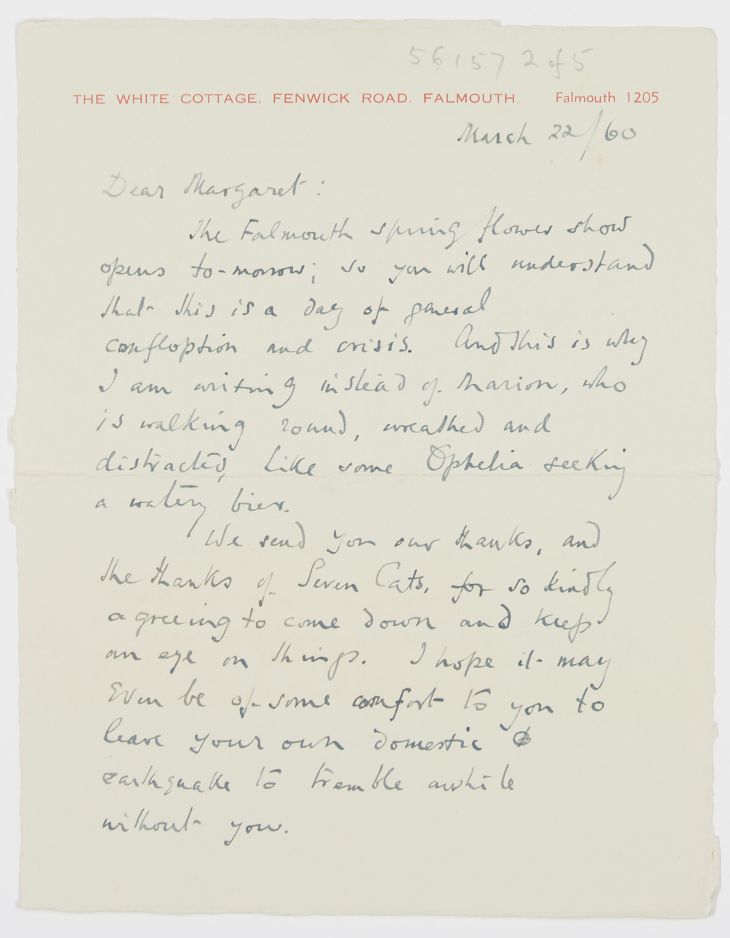 56157 2 of 5
THE WHITE COTTAGE. FENWICK ROAD. FALMOUTH. Falmouth 1205
March 22/60
Dear Margaret:
The Falmouth spring flower show
opens to-morrow; so you will understand
that this is a day of general
confloption and crisis. And this is why
I am writing instead of Marion, who
is walking round, wreathed and
distracted, like some Ophelia seeking
a watery bier.
We send you our thanks, and
the thanks of Seven Cats, for so kindly
agreeing to come down and keep
an eye on things. I hope it may
even be of some comfort to you to
leave your own domestic
earthquake to tremble awhile
without you.